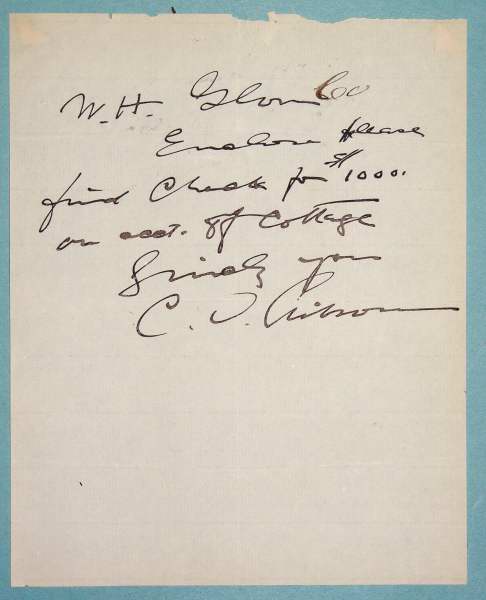 W. H. Glover Co
Enclose please
find Check for $1000.
on acct. of Cottage
Sincerely yours
C. D. Gibson